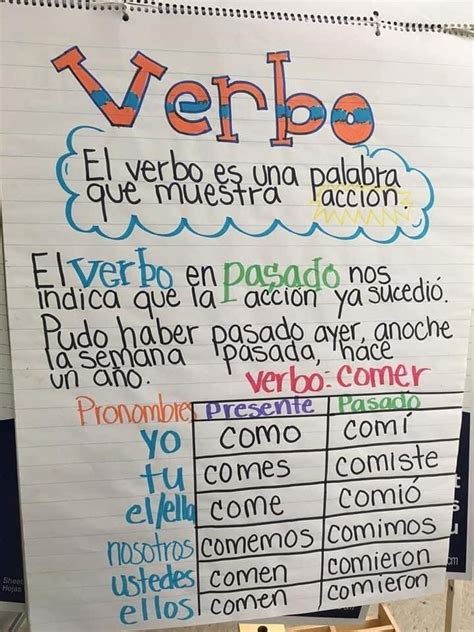 Verbo
El verbo es una palabra
que muestra acción.
El verbo en pasado nos
indica que la acción ya sucedió.
Pudo haber pasado ayer, anoche
la semana pasada, hace
un año.
verbo: comer
Pronombres Presente Pasado
yo como comí
tu comes comiste
el/ella come comió
nosotros comemos comimos
ustedes comen comieron
ellos comen comieron